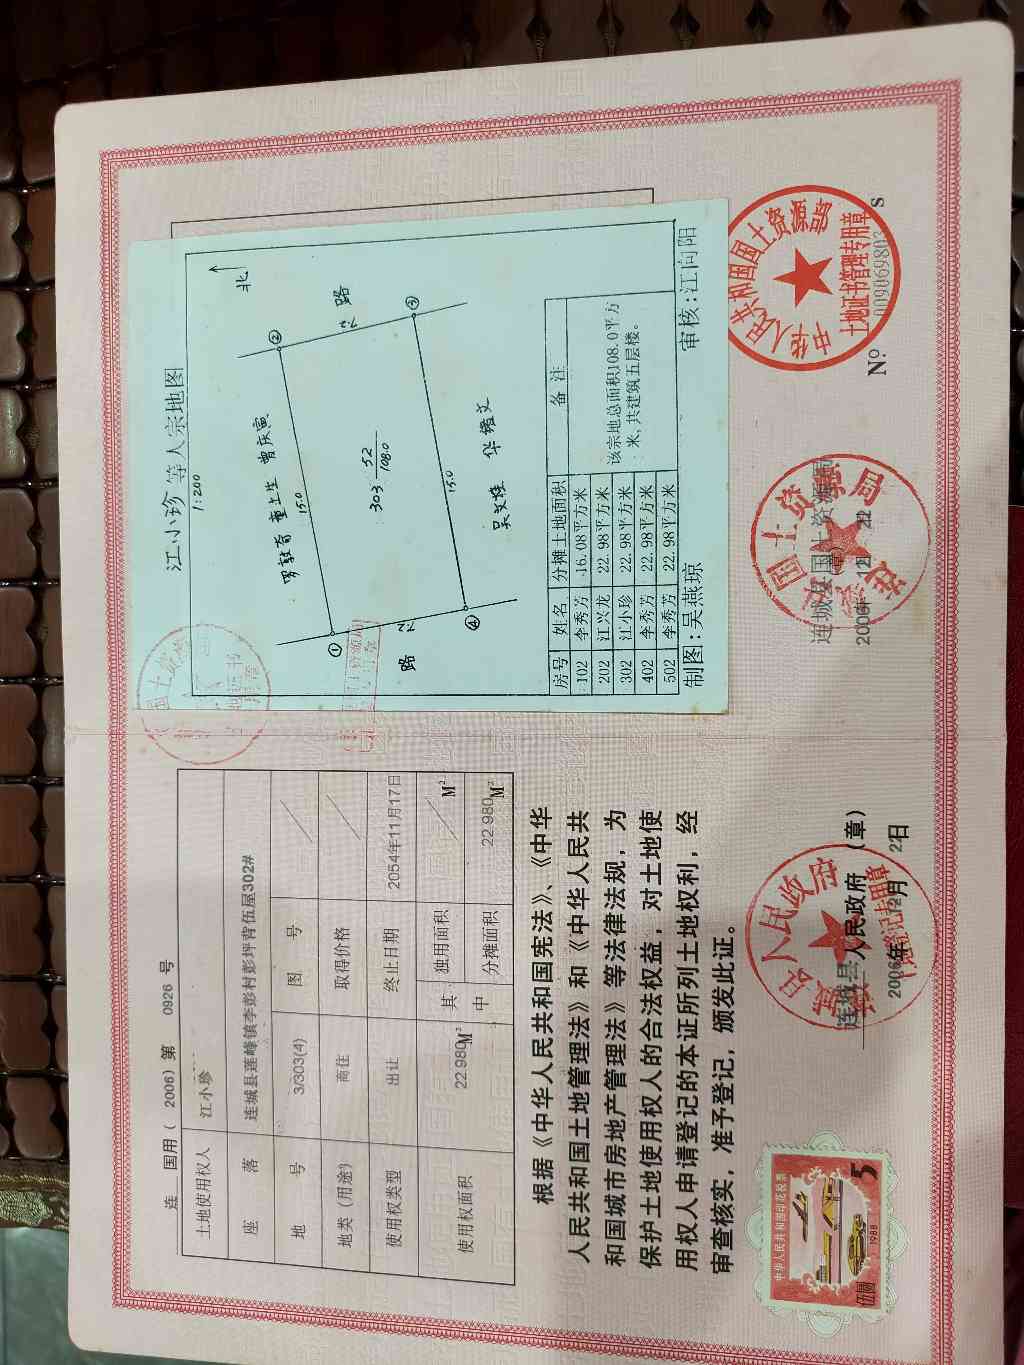 连 国用（ 2006）第 0926 号
土地使用权人 江小珍
座 落 连城县莲峰镇李彭村彭坪背伍屋302#
地 号 3/303(4) 图 号 ／
地类（用途） 商住 取得价格 ／
使用权类型 出让 终止日期 2054年11月17日
使用权面积 22.980M² 其中 独用面积 ／ M²
分摊面积 22.980M²
根据《中华人民共和国宪法》、《中华
人民共和国土地管理法》和《中华人民共
和国城市房地产管理法》等法律法规，为
保护土地使用权人的合法权益，对土地使
用权人申请登记的本证所列土地权利，经
审查核实，准予登记，颁发此证。
中华人民共和国印花税票
伍圆 1988 5
连城县人民政府（章）
土地登记专用章
2006年12月22日
江小珍等人宗地图
1:200
北
罗敦育 童上生 曾庆寅
① ②
15.0
路
303 52
108.0
路
15.0
④ ③
吴文桂 华锗文
房号 姓名 分摊土地面积 备 注
102 李秀芳 16.08平方米 该宗地总面积108.0平方
202 江兴龙 22.98平方米 米,共建筑五层楼。
302 江小珍 22.98平方米
402 李秀芳 22.98平方米
502 李秀芳 22.98平方米
制图:吴燕琼 审核:江向阳
连城县国土资源局
（章）
2006年 12月 22日
中华人民共和国国土资源部
土地证书管理专用章
Nº 009069803 S